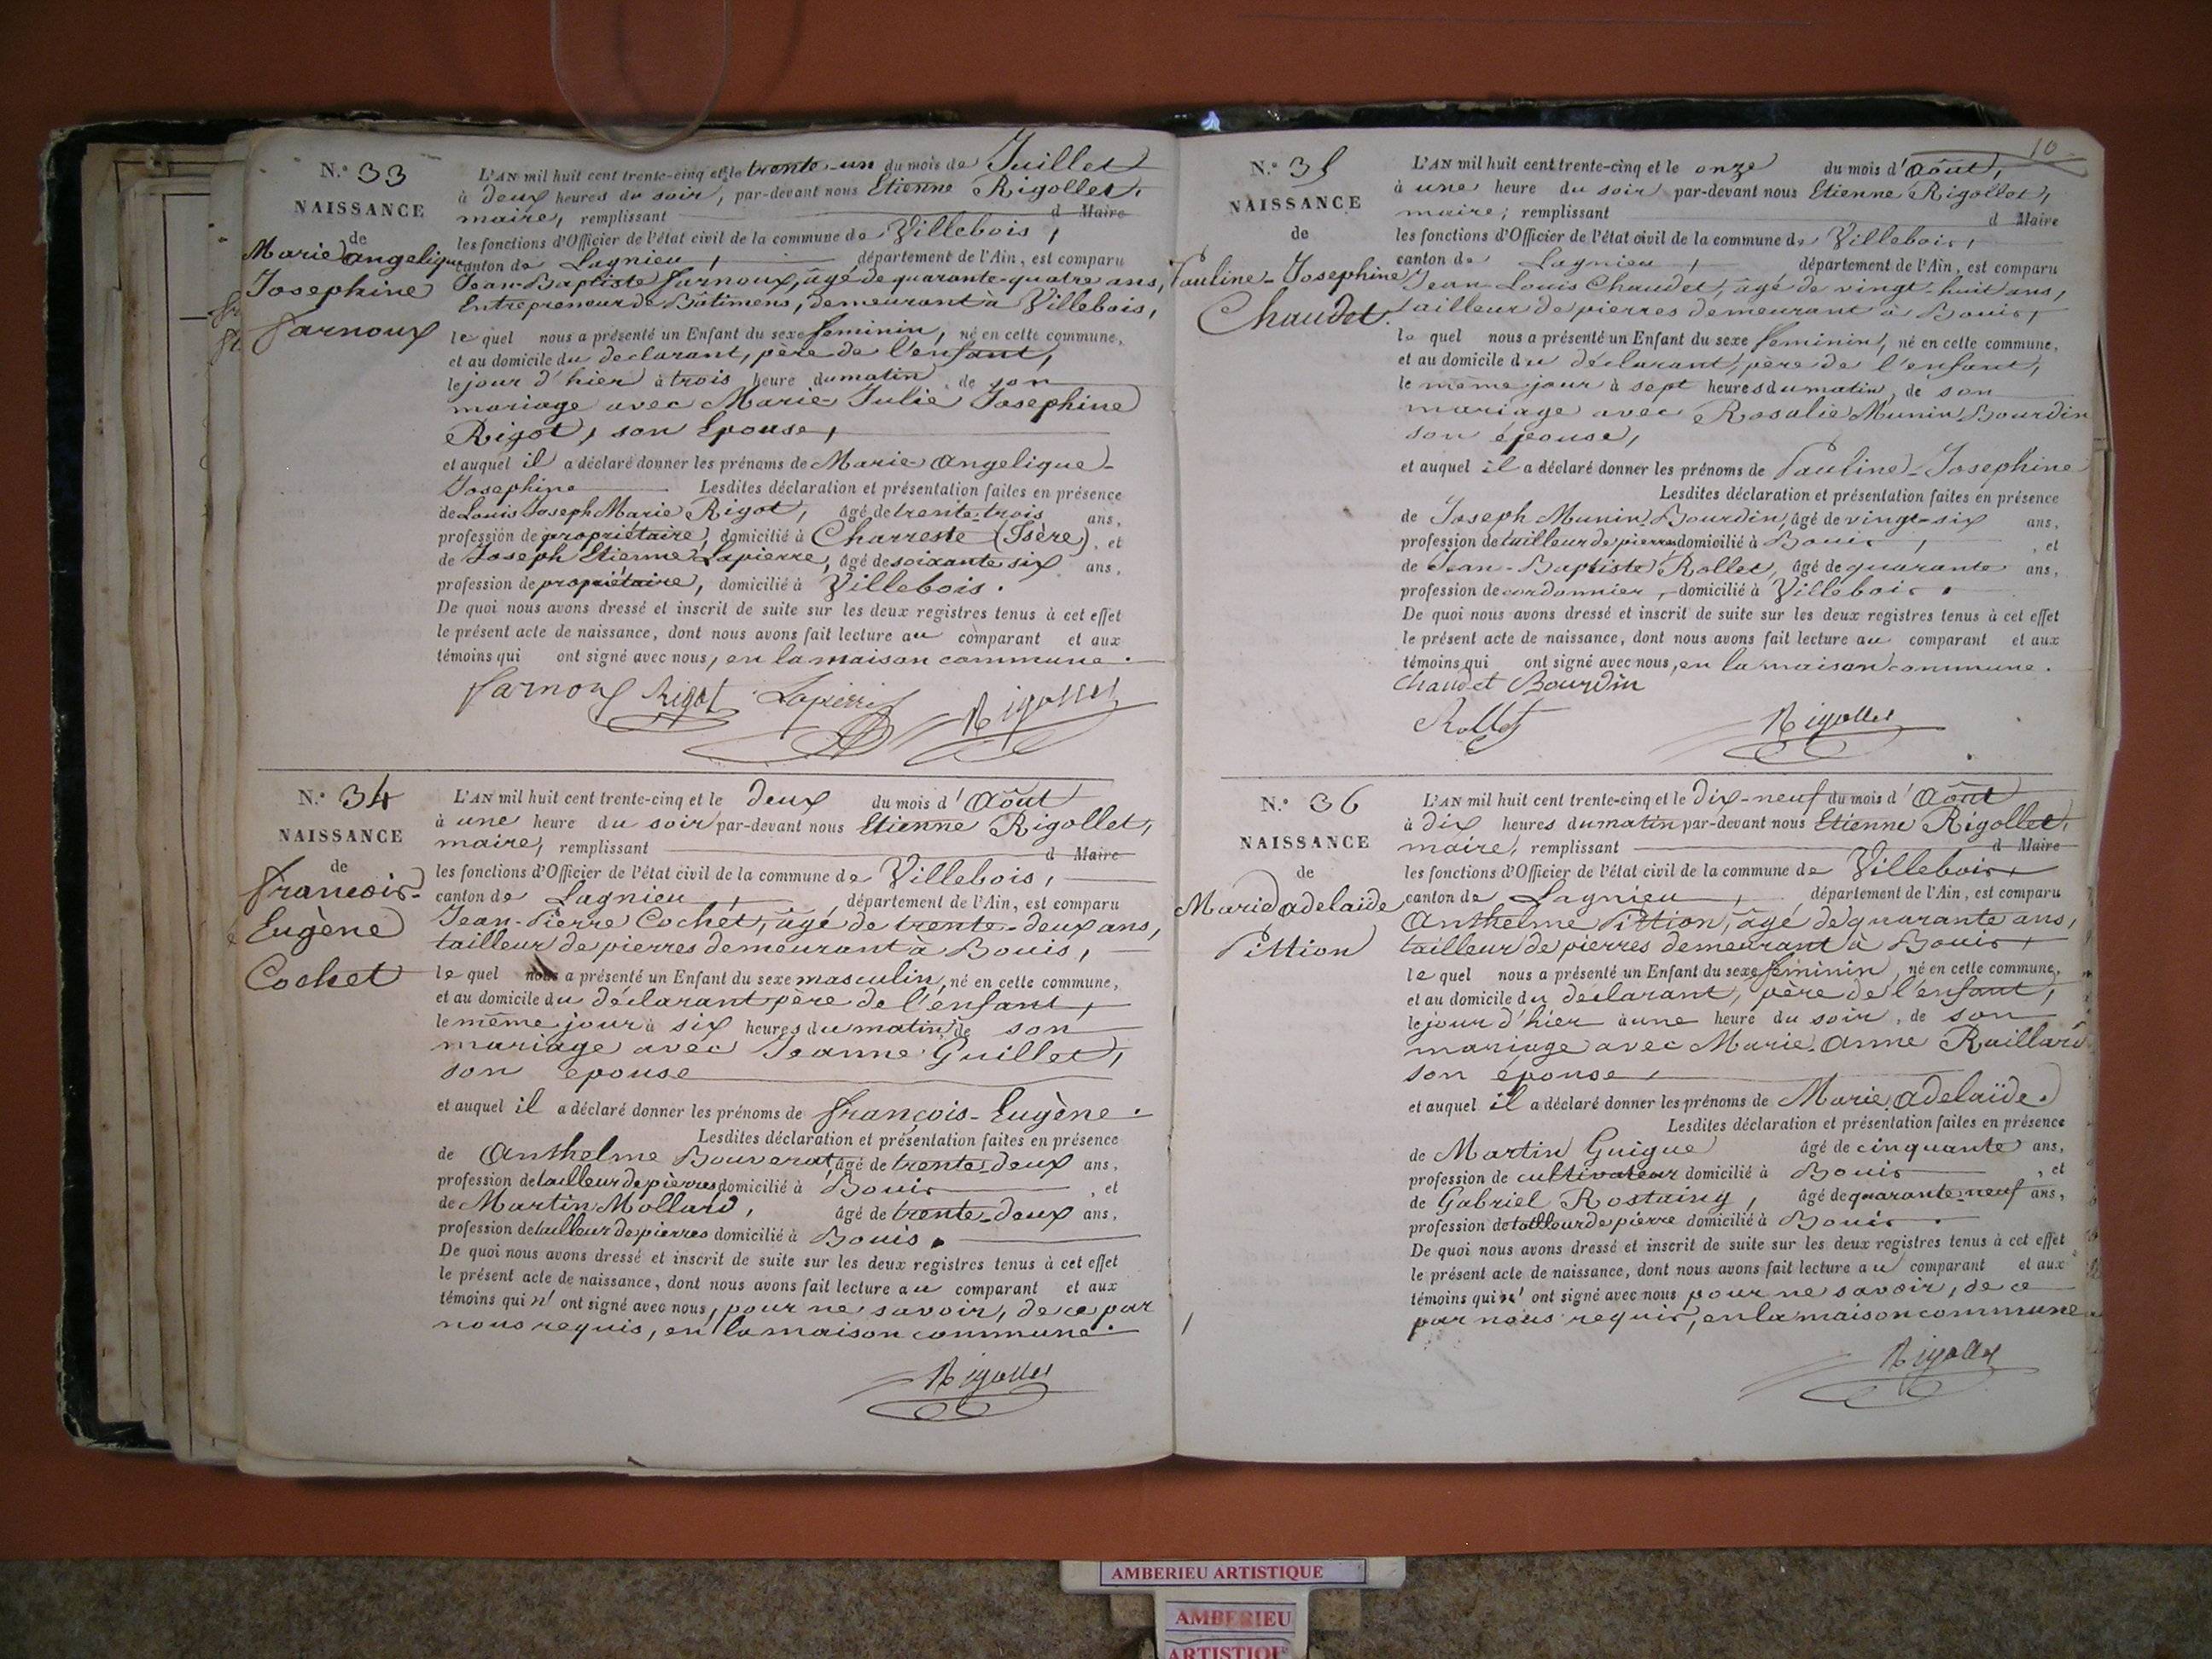 N.° 33
NAISSANCE
de
Marie angelique
Josephine
farnoux
L'AN mil huit cent trente-cinq et le trente-un du mois de Juillet
à deux heures du soir, par-devant nous Etienne Rigollet,
maire, remplissant d Maire
les fonctions d'Officier de l'état civil de la commune de Villebois,
canton de Lagnieu, département de l'Ain, est comparu
Jean-Baptiste farnoux, âgé de quarante-quatre ans,
Entrepreneur de Bâtimens, demeurant à Villebois,
le quel nous a présenté un Enfant du sexe feminin, né en cette commune,
et au domicile du declarant, père de l'enfant,
le jour d'hier à trois heure du matin, de son
mariage avec Marie Julie Josephine
Rigot, son Epouse,
et auquel il a déclaré donner les prénoms de Marie Angelique-
Josephine Lesdites déclaration et présentation faites en présence
de Louis Joseph Marie Rigot, âgé de trente-trois ans,
profession de propriétaire, domicilié à Charreste (Isère), et
de Joseph Etienne Lapierre, âgé de soixante six ans,
profession de propriétaire, domicilié à Villebois.
De quoi nous avons dressé et inscrit de suite sur les deux registres tenus à cet effet
le présent acte de naissance, dont nous avons fait lecture au comparant et aux
témoins qui ont signé avec nous, en la maison commune.
farnoux Rigot Lapierre Rigollet
N.° 34
NAISSANCE
de
francois-
Eugène
Cochet
L'AN mil huit cent trente-cinq et le deux du mois d'Août
à une heure du soir par-devant nous Etienne Rigollet,
maire, remplissant d Maire
les fonctions d'Officier de l'état civil de la commune de Villebois,
canton de Lagnieu, département de l'Ain, est comparu
Jean-Pierre Cochet, âgé de trente-deux ans,
tailleur de pierres demeurant à Bouis,
le quel nous a présenté un Enfant du sexe masculin, né en cette commune,
et au domicile du déclarant père de l'enfant,
le même jour à six heures du matin, de son
mariage avec Jeanne Guillet,
son epouse
et auquel il a déclaré donner les prénoms de françois-Eugène.
Lesdites déclaration et présentation faites en présence
de Anthelme Bouverat, âgé de trente deux ans,
profession de tailleur de pierres domicilié à Bouis, et
de Martin Mollard, âgé de trente-deux ans,
profession de tailleur de pierres domicilié à Bouis.
De quoi nous avons dressé et inscrit de suite sur les deux registres tenus à cet effet
le présent acte de naissance, dont nous avons fait lecture au comparant et aux
témoins qui n'ont signé avec nous, pour ne savoir, de ce par
nous requis, en la maison commune.
Rigollet
10
N.° 35
NAISSANCE
de
Pauline-Josephine
Chaudet.
L'AN mil huit cent trente-cinq et le onze du mois d'Août,
à une heure du soir par-devant nous Etienne Rigollet,
maire; remplissant d Maire
les fonctions d'Officier de l'état civil de la commune de Villebois,
canton de Lagnieu, département de l'Ain, est comparu
Jean Louis Chaudet, âgé de vingt-huit ans,
tailleur de pierres demeurant à Bouis,
le quel nous a présenté un Enfant du sexe feminin, né en cette commune,
et au domicile du déclarant, père de l'enfant,
le même jour à sept heures du matin, de son
mariage avec Rosalie Munin Bourdin
son épouse,
et auquel il a déclaré donner les prénoms de Pauline-Josephine
Lesdites déclaration et présentation faites en présence
de Joseph Munin Bourdin, âgé de vingt-six ans,
profession de tailleur de pierres domicilié à Bouis, et
de Jean-Baptiste Rollet, âgé de quarante ans,
profession de cordonnier, domicilié à Villebois.
De quoi nous avons dressé et inscrit de suite sur les deux registres tenus à cet effet
le présent acte de naissance, dont nous avons fait lecture au comparant et aux
témoins qui ont signé avec nous, en la maison commune.
Chaudet Bourdin
Rollet Rigollet
N.° 36
NAISSANCE
de
Marie adelaide
Pittion
L'AN mil huit cent trente-cinq et le Dix-neuf du mois d'Août
à dix heures du matin par-devant nous Etienne Rigollet,
maire, remplissant d Maire
les fonctions d'Officier de l'état civil de la commune de Villebois,
canton de Lagnieu, département de l'Ain, est comparu
Anthelme Pittion, âgé de quarante ans,
tailleur de pierres demeurant à Bouis,
le quel nous a présenté un Enfant du sexe feminin, né en cette commune,
et au domicile du declarant, père de l'enfant,
le jour d'hier à une heure du soir, de son
mariage avec Marie-Anne Raillard
son epouse,
et auquel il a déclaré donner les prénoms de Marie Adelaïde.
Lesdites déclaration et présentation faites en présence
de Martin Guigue âgé de cinquante ans,
profession de cultivateur domicilié à Bouis, et
de Gabriel Rostaing, âgé de quarante-neuf ans,
profession de tailleur de pierre domicilié à Bouis.
De quoi nous avons dressé et inscrit de suite sur les deux registres tenus à cet effet
le présent acte de naissance, dont nous avons fait lecture au comparant et aux
témoins qui n'ont signé avec nous pour ne savoir, de ce
par nous requis, en la maison commune
Rigollet
AMBERIEU ARTISTIQUE
AMBERIEU
ARTISTIQUE